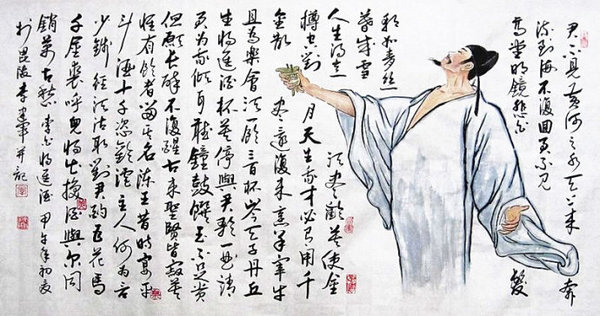 君不見黃河之水天上來奔
流到海不復回君不見
高堂明鏡悲白髮
朝如青絲
暮成雪
人生得意須盡歡莫使金
樽空對月天生我才必有用千
金散盡還復來烹羊宰牛
且為樂會須一飲三百杯岑夫子丹丘
生將進酒杯莫停與君歌一曲請
君為我傾耳聽鐘鼓饌玉不足貴
但願長醉不復醒古來聖賢皆寂莫
惟有飲者留其名陳王昔時宴平
斗酒十千恣歡謔主人何為言
少錢徑須沽取對君酌五花馬
千金裘呼兒將出換酒與爾同
銷萬古愁 李白將進酒 甲午年初夏
於毘陵李軍并記